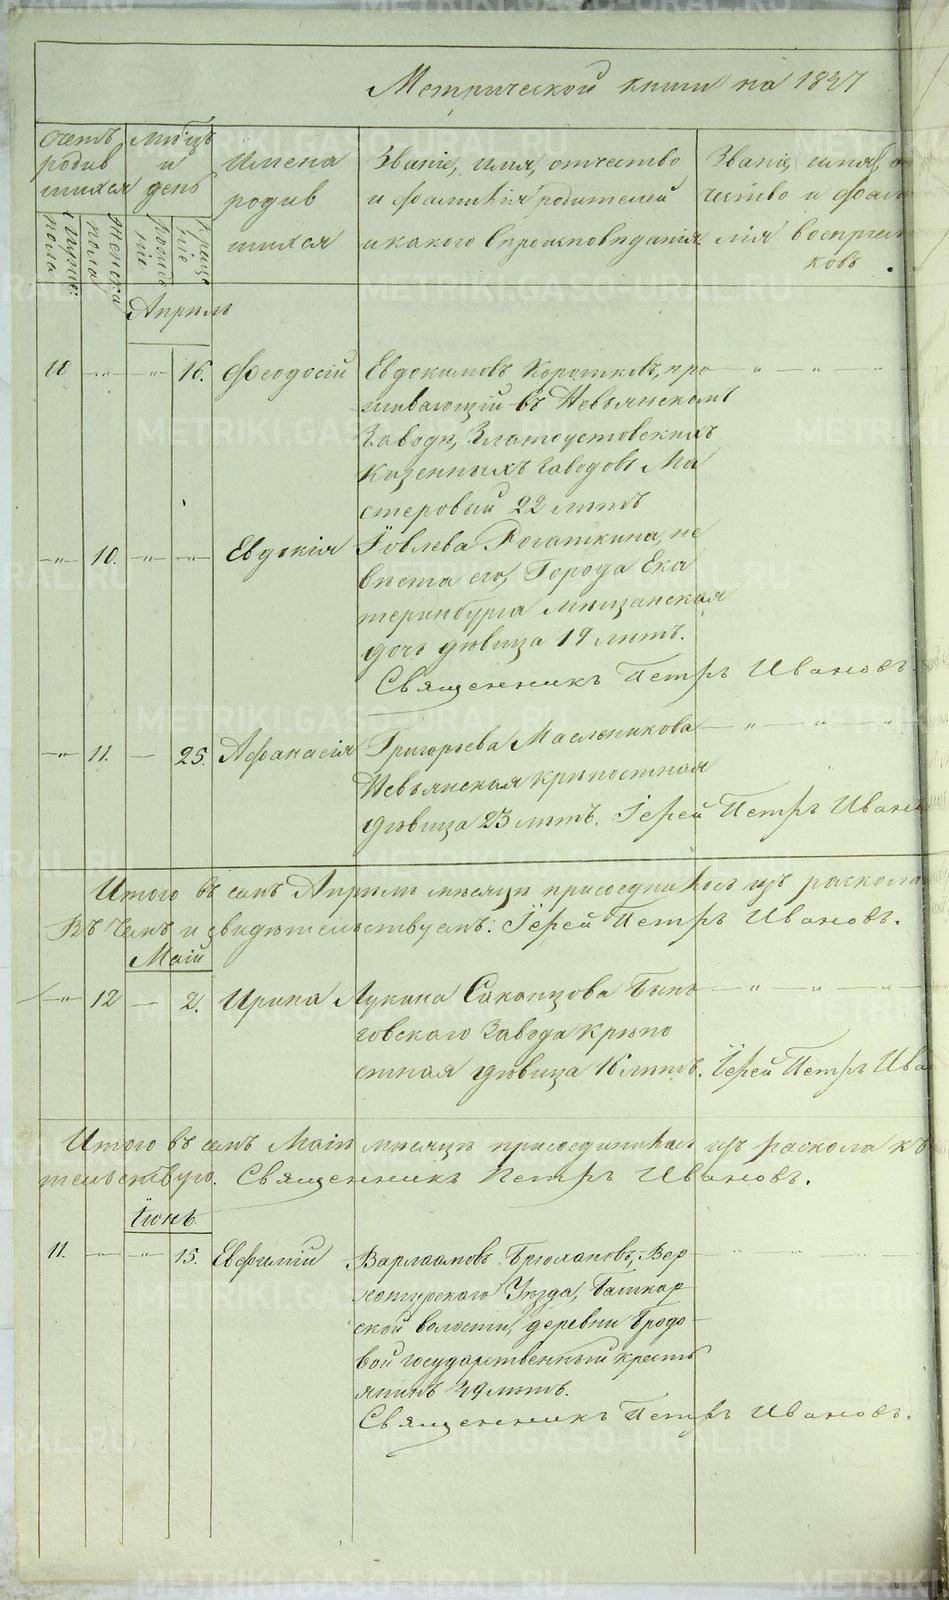 Метрической книги на 1837
Счетъ родившихся
Мѣсяцъ и день
Имена родившихся
Званіе, имя, отчество и фамилія родителей и какого вѣроисповѣданія
Званіе, имя, отчество и фамилія воспріемниковъ
мужес: пола
женска пола
рожденіе
крещеніе
Апрель
10 16. Феодосій Евдокимовъ Коротковъ, про
живающій въ Невьянскомъ
Заводѣ, Златоустовскихъ
Казенныхъ Заводовъ Ма
стеровый 22 лѣтъ
10. Евдокія Іовлева Рогаткина, не
вѣста его, Города Ека
теринбурга мѣщанская
дочь дѣвица 19 лѣтъ.
Священникъ Петръ Ивановъ.
11. 25. Афанасія Григорьева Масленикова
Невьянская крѣпостная
дѣвица 23 лѣтъ. Іерей Петръ Ивано
Итого въ семъ Апрелѣ мѣсяцѣ присоединилось изъ раскола
Въ чемъ и свидѣтельствуемъ: Іерей Петръ Ивановъ.
Маій
12 2. Ирина Лукина Саканцова Бын
говскаго Завода крѣпо
стная дѣвица 16 лѣтъ. Іерей Петръ Ива
Итого въ семъ Маіѣ мѣсяцѣ присоединилась изъ раскола къ
тельствую. Священникъ Петръ Ивановъ.
Іюнь.
11. 15. Евфимій Варлаамовъ Брюхановъ, Вер
хотурскаго Уѣзда, Башкар
ской волости, деревни Бродо
вой государственный кресть
янинъ 39 лѣтъ.
Священникъ Петръ Ивановъ.
METRIKI.GASO-URAL.RU